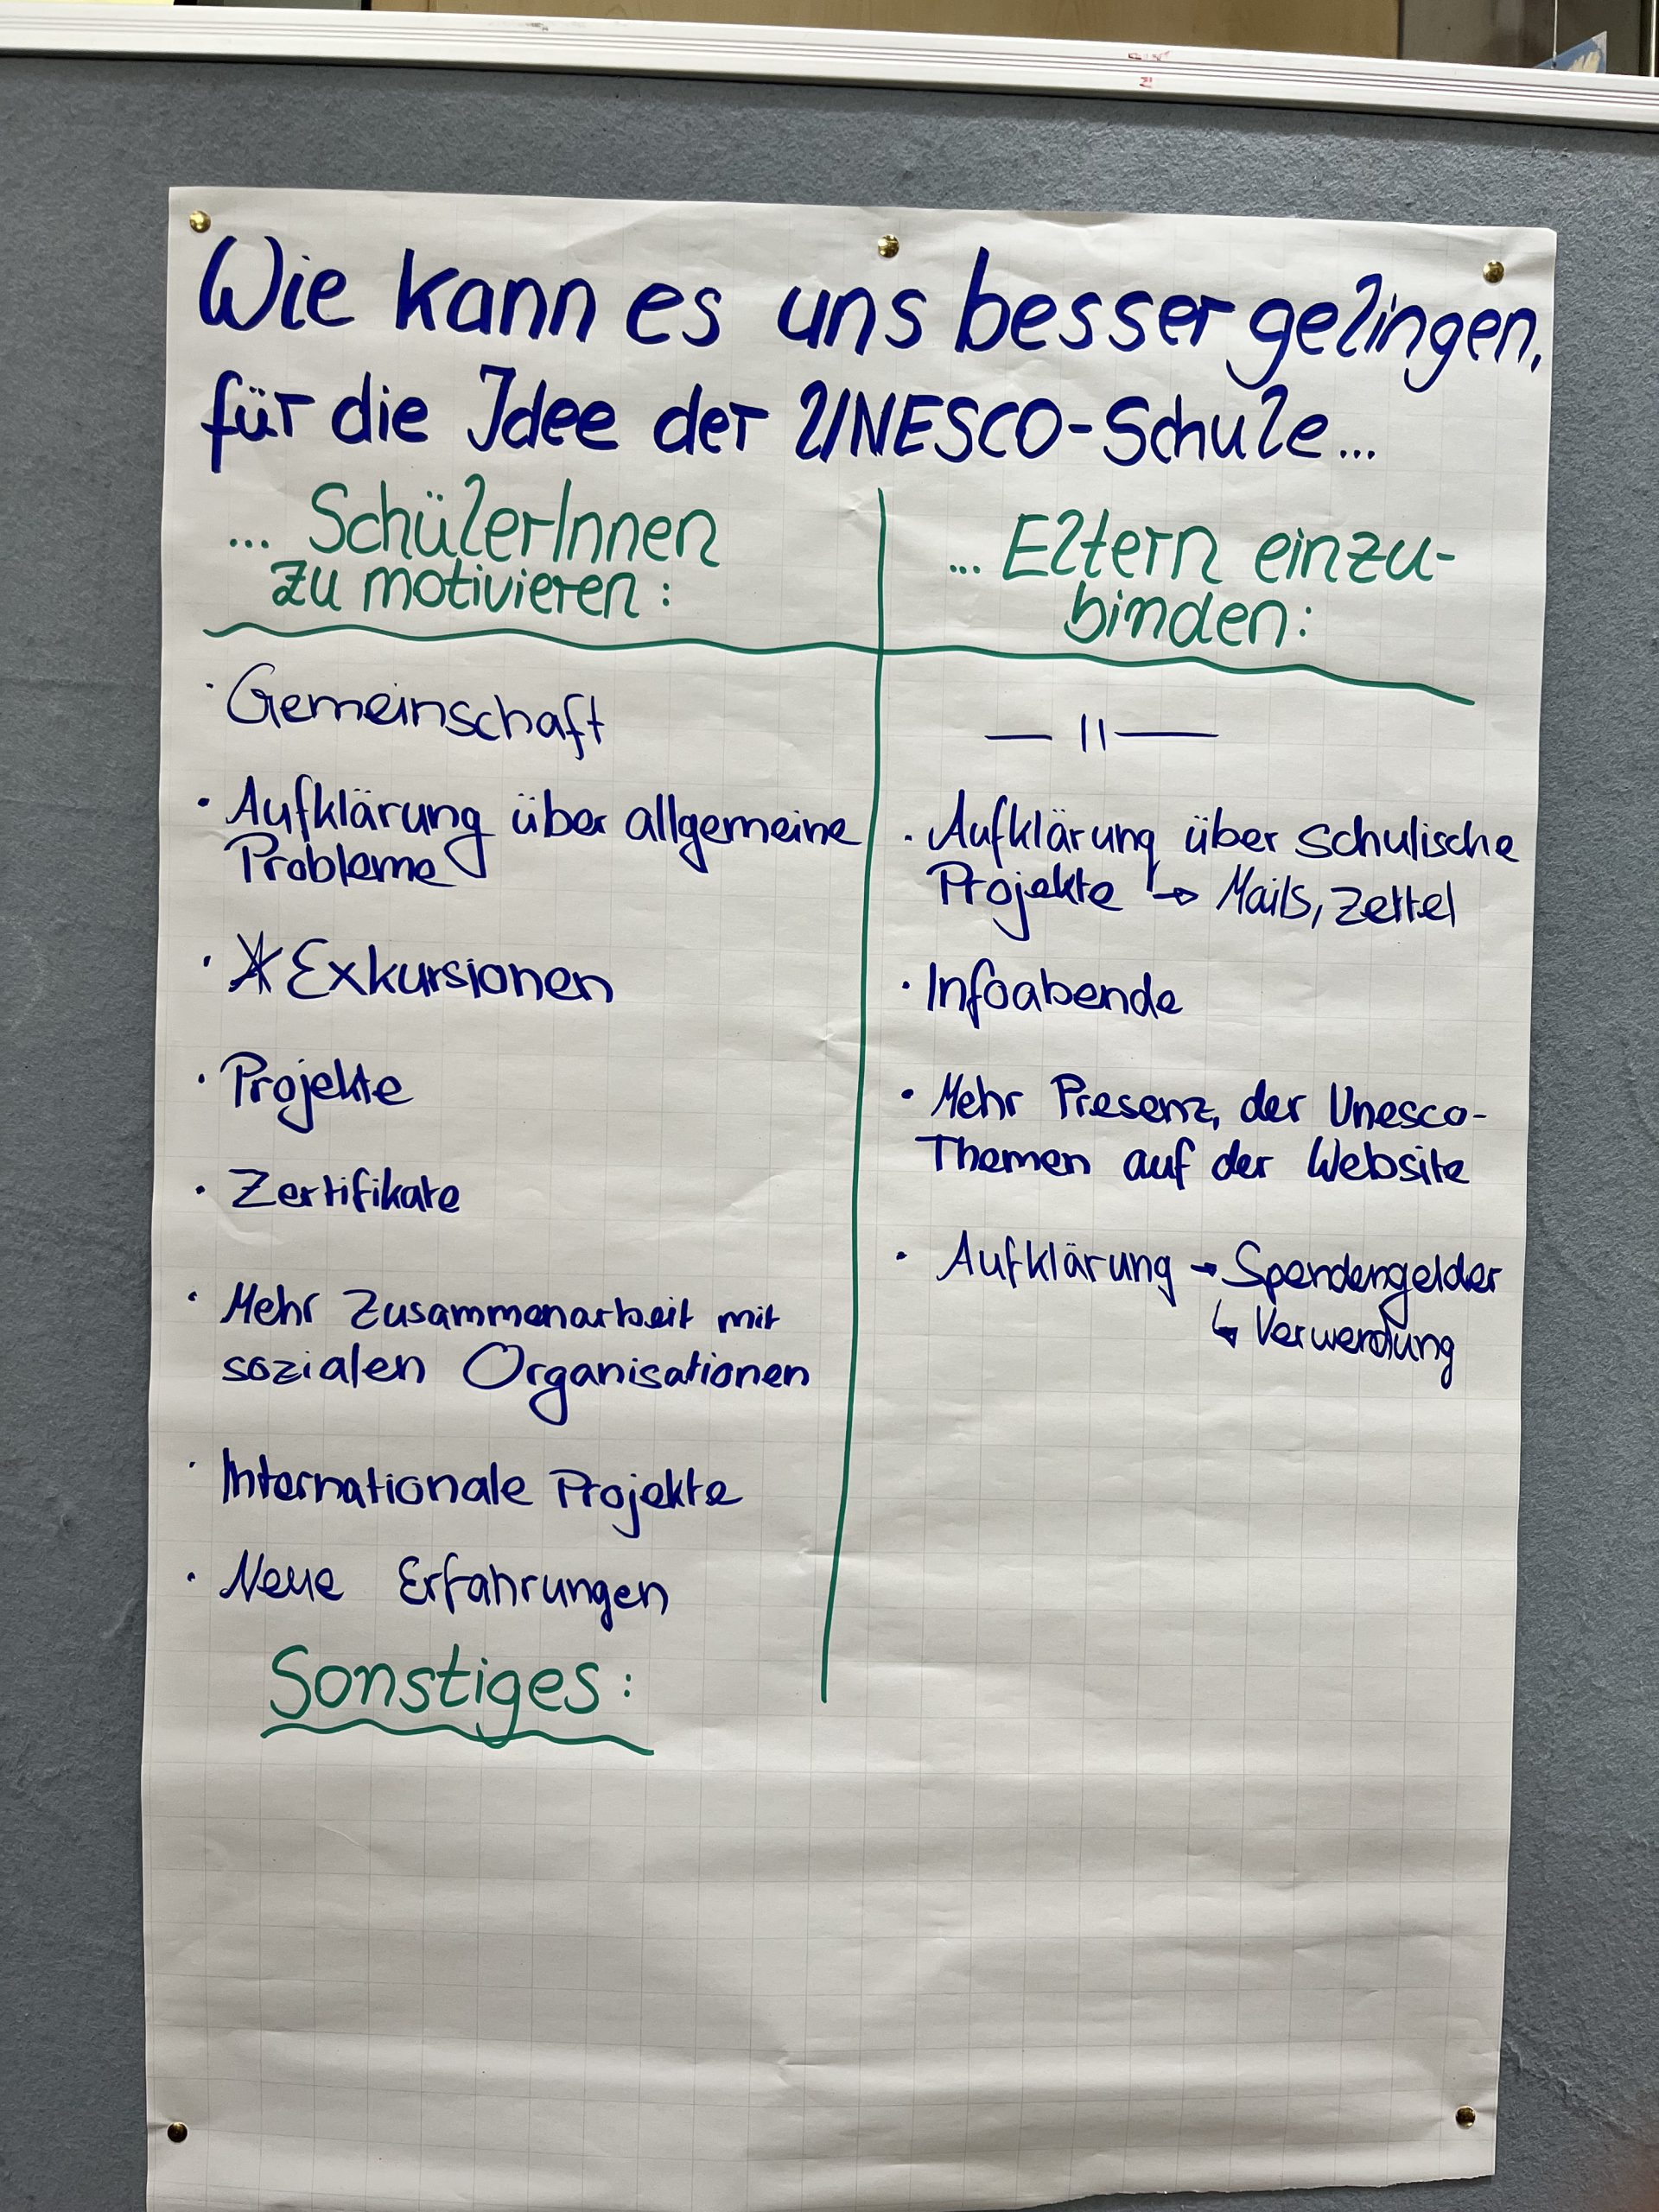 Wie kann es uns besser gelingen,
für die Idee der UNESCO-Schule...
... SchülerInnen
zu motivieren:
· Gemeinschaft
· Aufklärung über allgemeine
Probleme
· Exkursionen
· Projekte
· Zertifikate
· Mehr Zusammenarbeit mit
sozialen Organisationen
· Internationale Projekte
· Neue Erfahrungen
... Eltern einzu-
binden:
— 11 —
· Aufklärung über schulische
Projekte → Mails, Zettel
· Infoabende
· Mehr Presenz, der Unesco-
Themen auf der Website
· Aufklärung → Spendengelder
↳ Verwendung
Sonstiges: